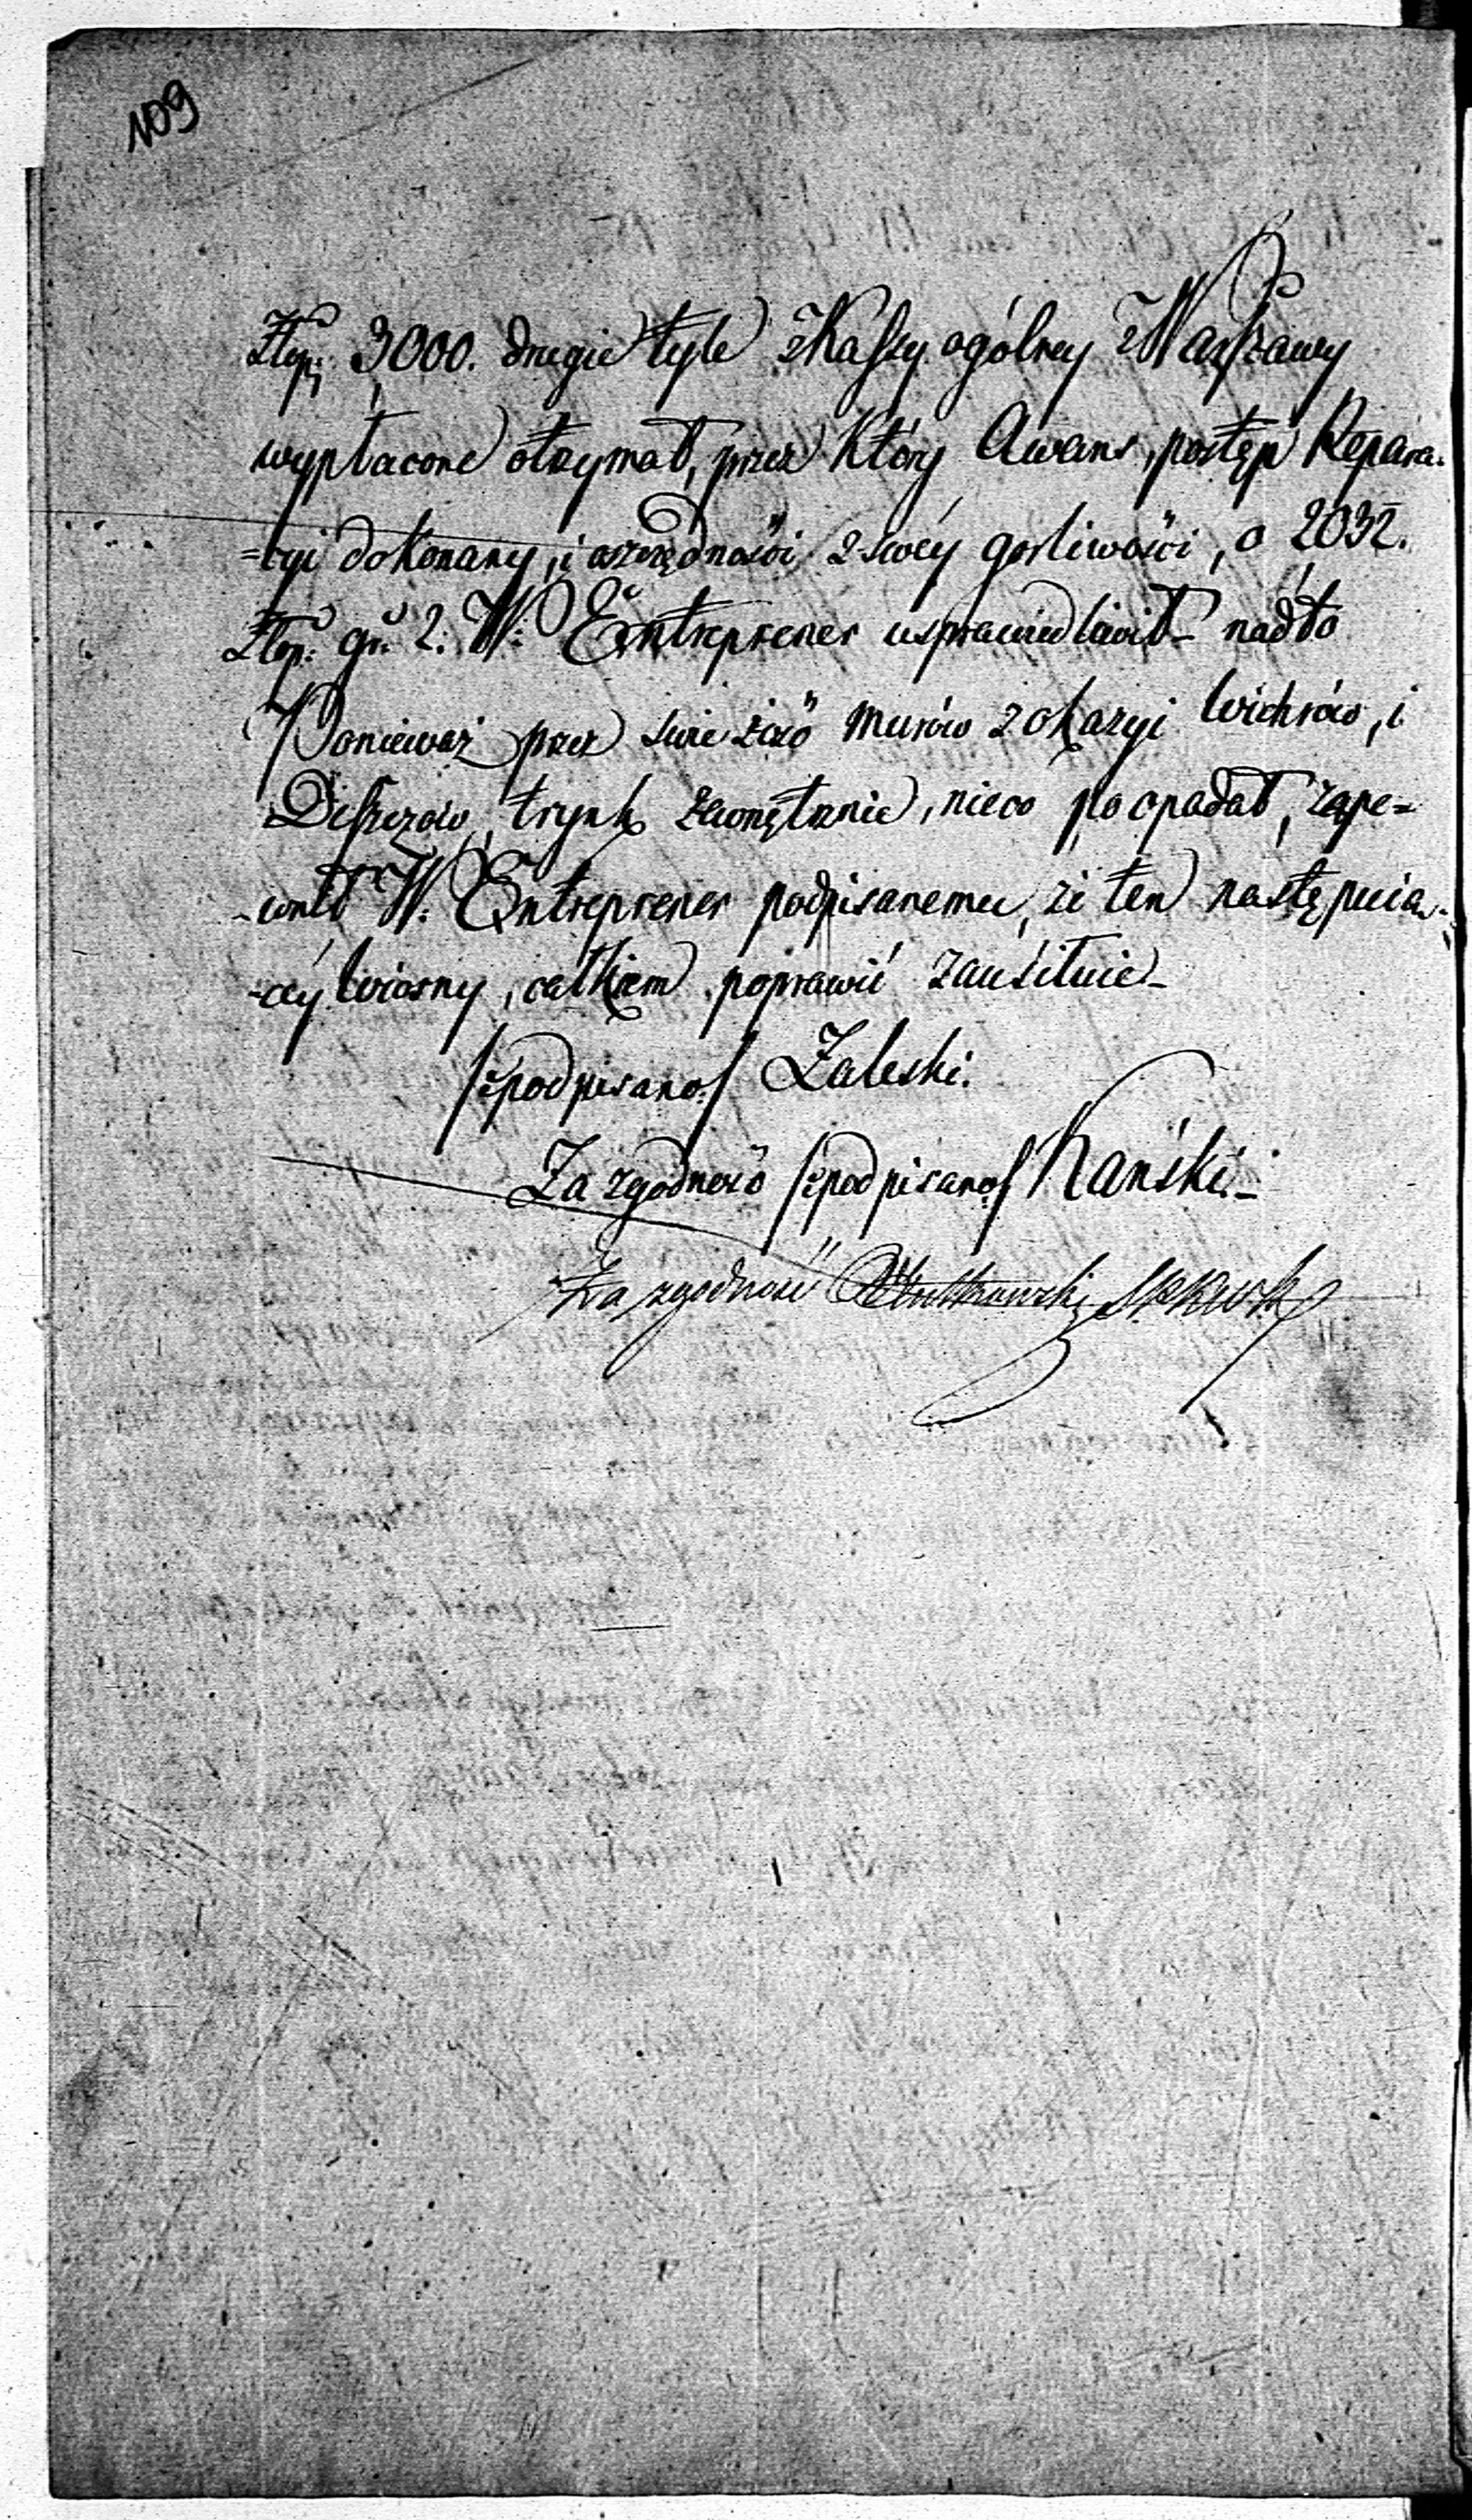 109
Złpp: 3000. drugie tyle z Kassy ogólney z Warszawy
wypłacone otrzymał, przez który Awans, postęp Repara-
=cyi dokonany, i oszczędności z swéy gorliwości, o 2032.
Złop: gr. 2. W: Entreprener usprawiedliwił_ nadto
Ponieważ przez swieżość murów z okazyi wichrów, i
Deszczów, trynk zewnętrznie, nieco poopadał, zape=
-wnił W: Entreprener podpisanemu, że ten następuią-
-céy wiosny, całkiem poprawić zausiłuie_
/:podpisano:/ Zaleski.
Za zgodność /:podpisano:/ Kański._
Za zgodność